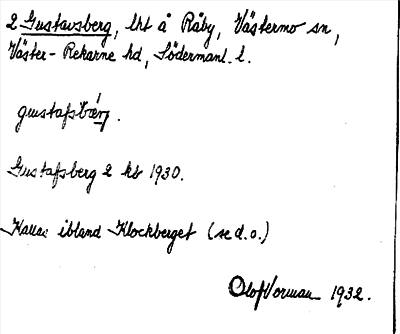 2 Gustavsberg, lht å Råby, Västermo sn,
Väster-Rekarne hd, Södermanl. l.
gustafsbærj.
Gustafsberg 2 kb 1930.
Kallas ibland Klockberget (se d.o.)
Olof Vorman 1932.